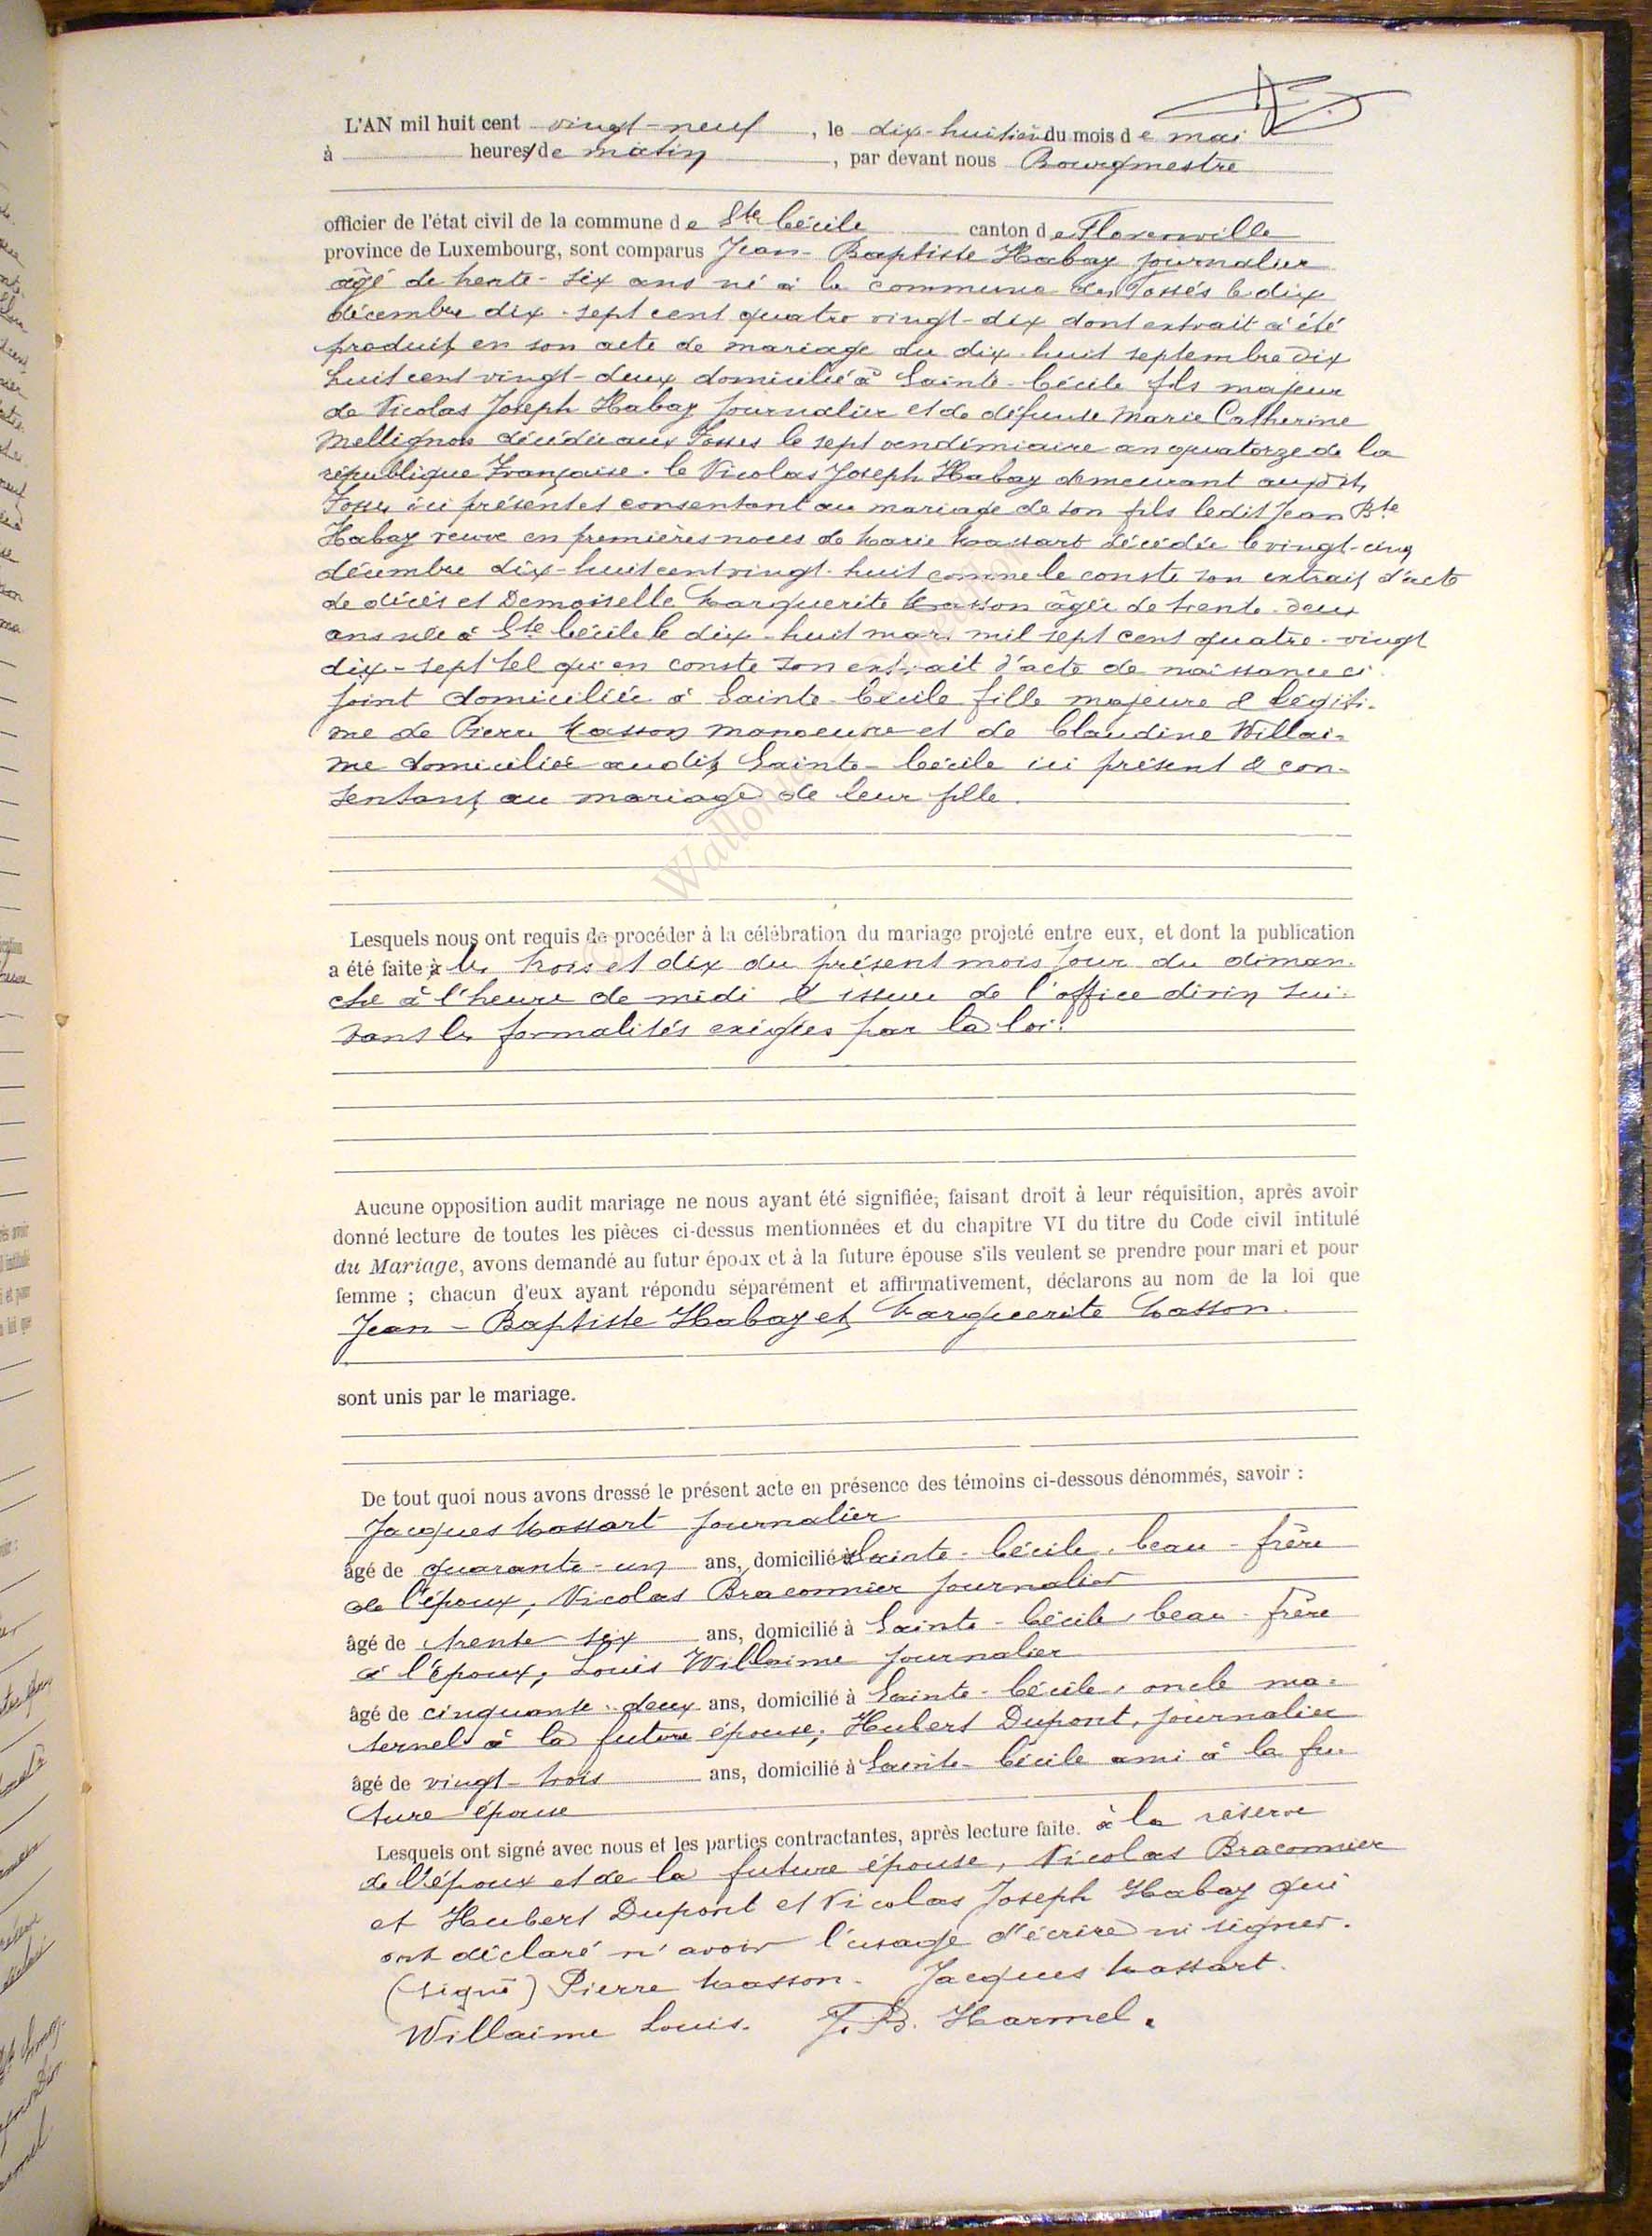 L'AN mil huit cent vingt-neuf, le dix-huitième du mois de mai
à heures de matin, par devant nous Bourgmestre
officier de l'état civil de la commune de Ste Cécile canton de Florenville
province de Luxembourg, sont comparus Jean-Baptiste Habay journalier
âgé de trente-six ans né à la commune des Fossés le dix
décembre dix-sept cent quatre vingt-dix dont extrait a été
produit en son acte de mariage du dix-huit septembre dix
huit cent vingt-deux domicilié à Sainte-Cécile fils majeur
de Nicolas Joseph Habay journalier et de défunte Marie Catherine
Mellignon décédée aux Fosses le sept vendémiaire an quatorze de la
république Française. le Nicolas Joseph Habay demeurant auxdits
Fosses ici présent et consentant au mariage de son fils ledit Jean Bte
Habay veuve en premières noces de Marie Massart décédée le vingt-cinq
décembre dix-huit cent vingt-huit comme le conste son extrait d'acte
de décès et Demoiselle Marguerite Masson âgée de trente-deux
ans née à Ste Cécile le dix-huit mars mil sept cent quatre-vingt
dix-sept tel qu'en conste son extrait d'acte de naissance ci
joint domiciliée à Sainte-Cécile fille majeure & légiti-
me de Pierre Masson manoeuvre et de Claudine Willai-
me domiciliée audit Sainte-Cécile ici présent & con-
sentant au mariage de leur fille.
Lesquels nous ont requis de procéder à la célébration du mariage projeté entre eux, et dont la publication
a été faite à les trois et dix du présent mois jour du diman-
che à l'heure de midi & issue de l'office divin sui-
vant les formalités exigées par la loi.
Aucune opposition audit mariage ne nous ayant été signifiée; faisant droit à leur réquisition, après avoir
donné lecture de toutes les pièces ci-dessus mentionnées et du chapitre VI du titre du Code civil intitulé
du Mariage, avons demandé au futur époux et à la future épouse s'ils veulent se prendre pour mari et pour
femme ; chacun d'eux ayant répondu séparément et affirmativement, déclarons au nom de la loi que
Jean-Baptiste Habay et Marguerite Masson.
sont unis par le mariage.
De tout quoi nous avons dressé le présent acte en présence des témoins ci-dessous dénommés, savoir :
Jacques Massart journalier
âgé de quarante-un ans, domicilié à Sainte-Cécile, beau-frère
de l'époux, Nicolas Braconnier journalier
âgé de trente six ans, domicilié à Sainte-Cécile, beau-frère
à l'époux, Louis Willaime journalier
âgé de cinquante-deux ans, domicilié à Sainte-Cécile, oncle ma-
ternel à la future épouse, Hubert Dupont, journalier
âgé de vingt-trois ans, domicilié à Sainte-Cécile ami à la fu-
ture épouse
Lesquels ont signé avec nous et les parties contractantes, après lecture faite. à la réserve
de l'époux et de la future épouse, Nicolas Braconnier
et Hubert Dupont et Nicolas Joseph Habay qui
ont déclaré n'avoir l'usage d'écrire ni signer.
(signé) Pierre Masson. Jacques Massart.
Willaime Louis. J. B. Harmel.